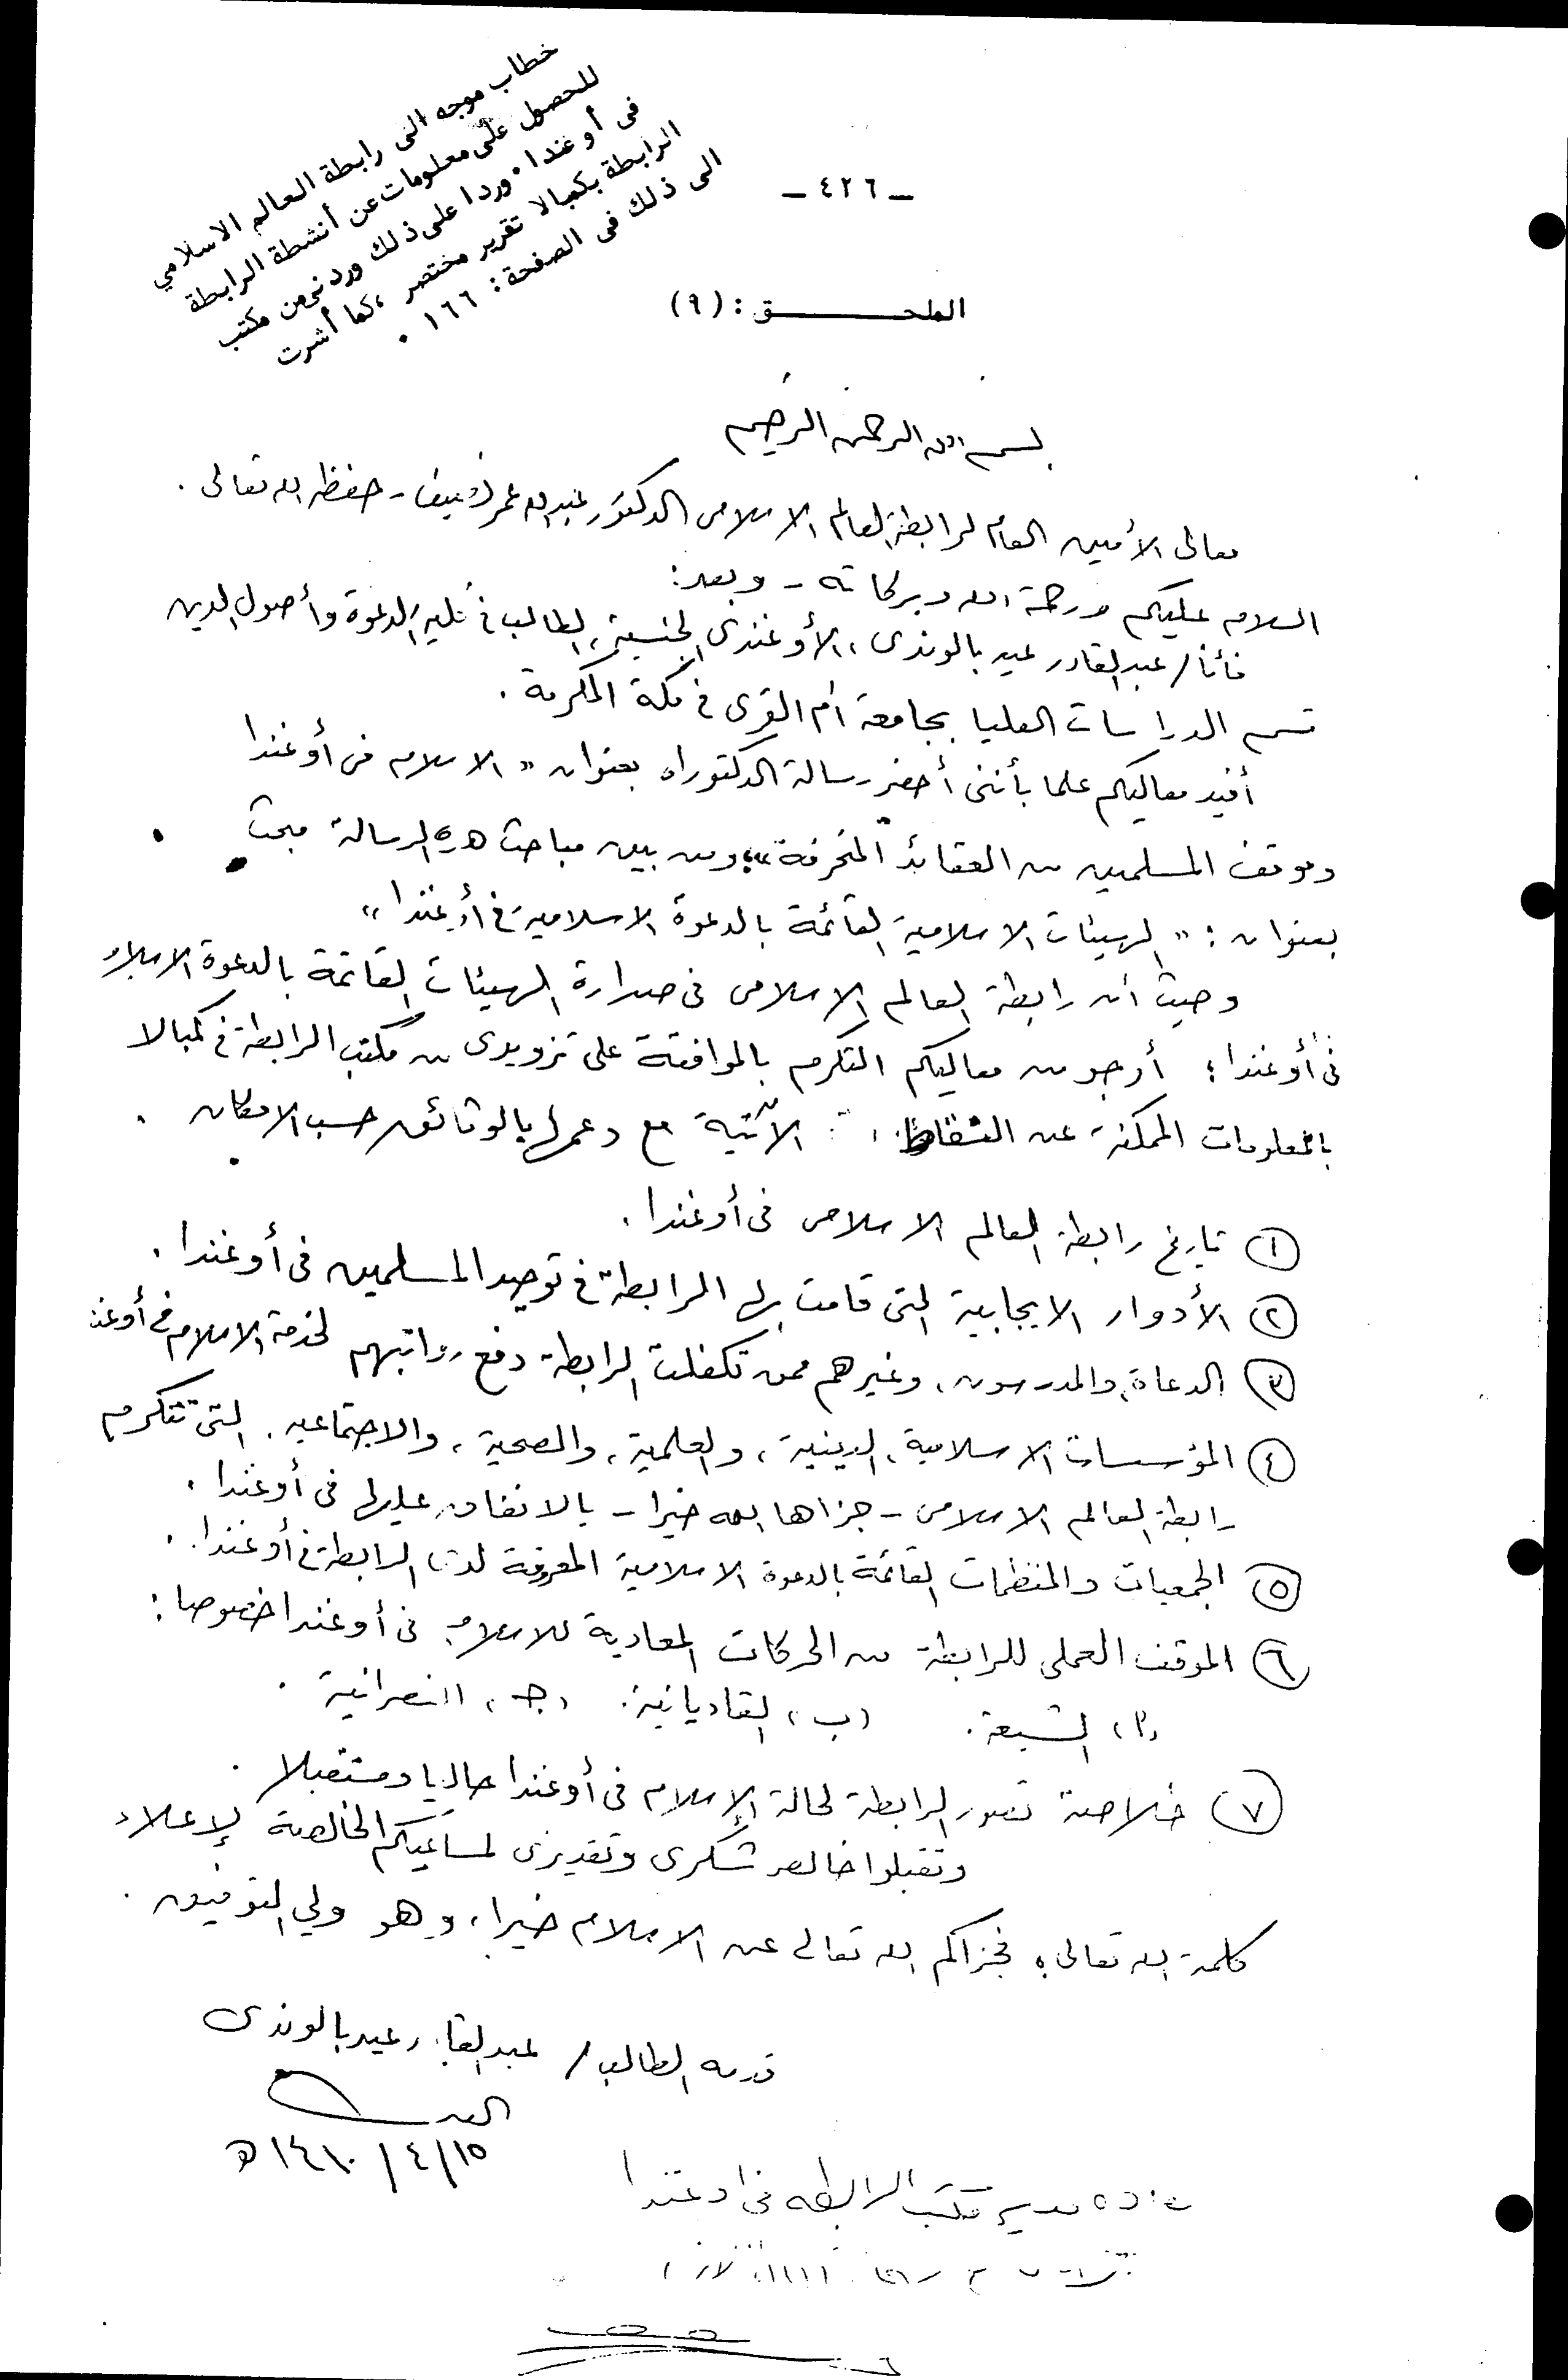 خطاب موجه الى رابطة العالم الاسلامي
للحصول على معلومات عن أنشطة الرابطة
فى أوغندا. وردا على ذلك وردنى من مكتب
الرابطة بكمبالا تقرير مختصر، كما أشرت
الى ذلك فى الصفحة: ١٦٦ .
- ٤٢٦ -
الملحق: (٩)
بسم الله الرحمن الرحيم
معالى الأمين العام لرابطة العالم الاسلامى الدكتور عبدالله عمر نصيف - حفظه الله تعالى .
السلام عليكم ورحمة الله وبركاته - وبعد:
فأنا / عبد القادر عيد بالوندى، الأوغندى الجنسية، الطالب فى كلية الدعوة وأصول الدين
قسم الدراسات العليا بجامعة أم القرى فى مكة المكرمة .
أفيد معاليكم علما بأننى أحضر رسالة الدكتوراه بعنوان " الاسلام فى أوغندا
وموقف المسلمين من العقائد المنحرفة"؛ ومن بين مباحث هذه الرسالة مبحث
بعنوان : " الهيئات الاسلامية القائمة بالدعوة الاسلامية فى أوغندا "
وحيث أن رابطة العالم الاسلامى فى صدارة الهيئات القائمة بالدعوة الاسلامية
فى أوغندا؛ أرجو من معاليكم التكرم بالموافقة على تزويدى من مكتب الرابطة فى كمبالا
بالمعلومات الممكنة عن النقاط الآتية مع دعمها بالوثائق حسب الامكان .
① تاريخ رابطة العالم الاسلامى فى أوغندا .
② الأدوار الايجابية التى قامت بها الرابطة فى توحيد المسلمين فى أوغندا .
③ الدعاة، والمدرسون، وغيرهم ممن تكفلت الرابطة دفع رواتبهم لخدمة الاسلام فى أوغندا
④ المؤسسات الاسلامية، الدينية، والعلمية، والصحية، والاجتماعية، التى تتكرم
رابطة العالم الاسلامى - جزاها الله خيرا - بالانفاق عليها فى أوغندا .
⑤ الجمعيات والمنظمات القائمة بالدعوة الاسلامية المعروفة لدى الرابطة فى أوغندا .
⑥ الموقف العملى للرابطة من الحركات المعادية للاسلام فى أوغندا خصوصا:
(أ) الشيعة. (ب) القاديانية. (جـ) النصرانية .
⑦ خلاصة تصور الرابطة لحالة الإسلام فى أوغندا حاليا ومستقبلا .
وتقبلوا خالص شكرى وتقديرى لمساعيكم الخالصة لإعلاء
كلمة الله تعالى، فجزاكم الله تعالى عن الاسلام خيرا، وهو ولي التوفيق .
قدمه الطالب / عبد القادر عيد بالوندى
١٥/٤/١٤١٠هـ
مدير مكتب الرابطه فى اوغندا